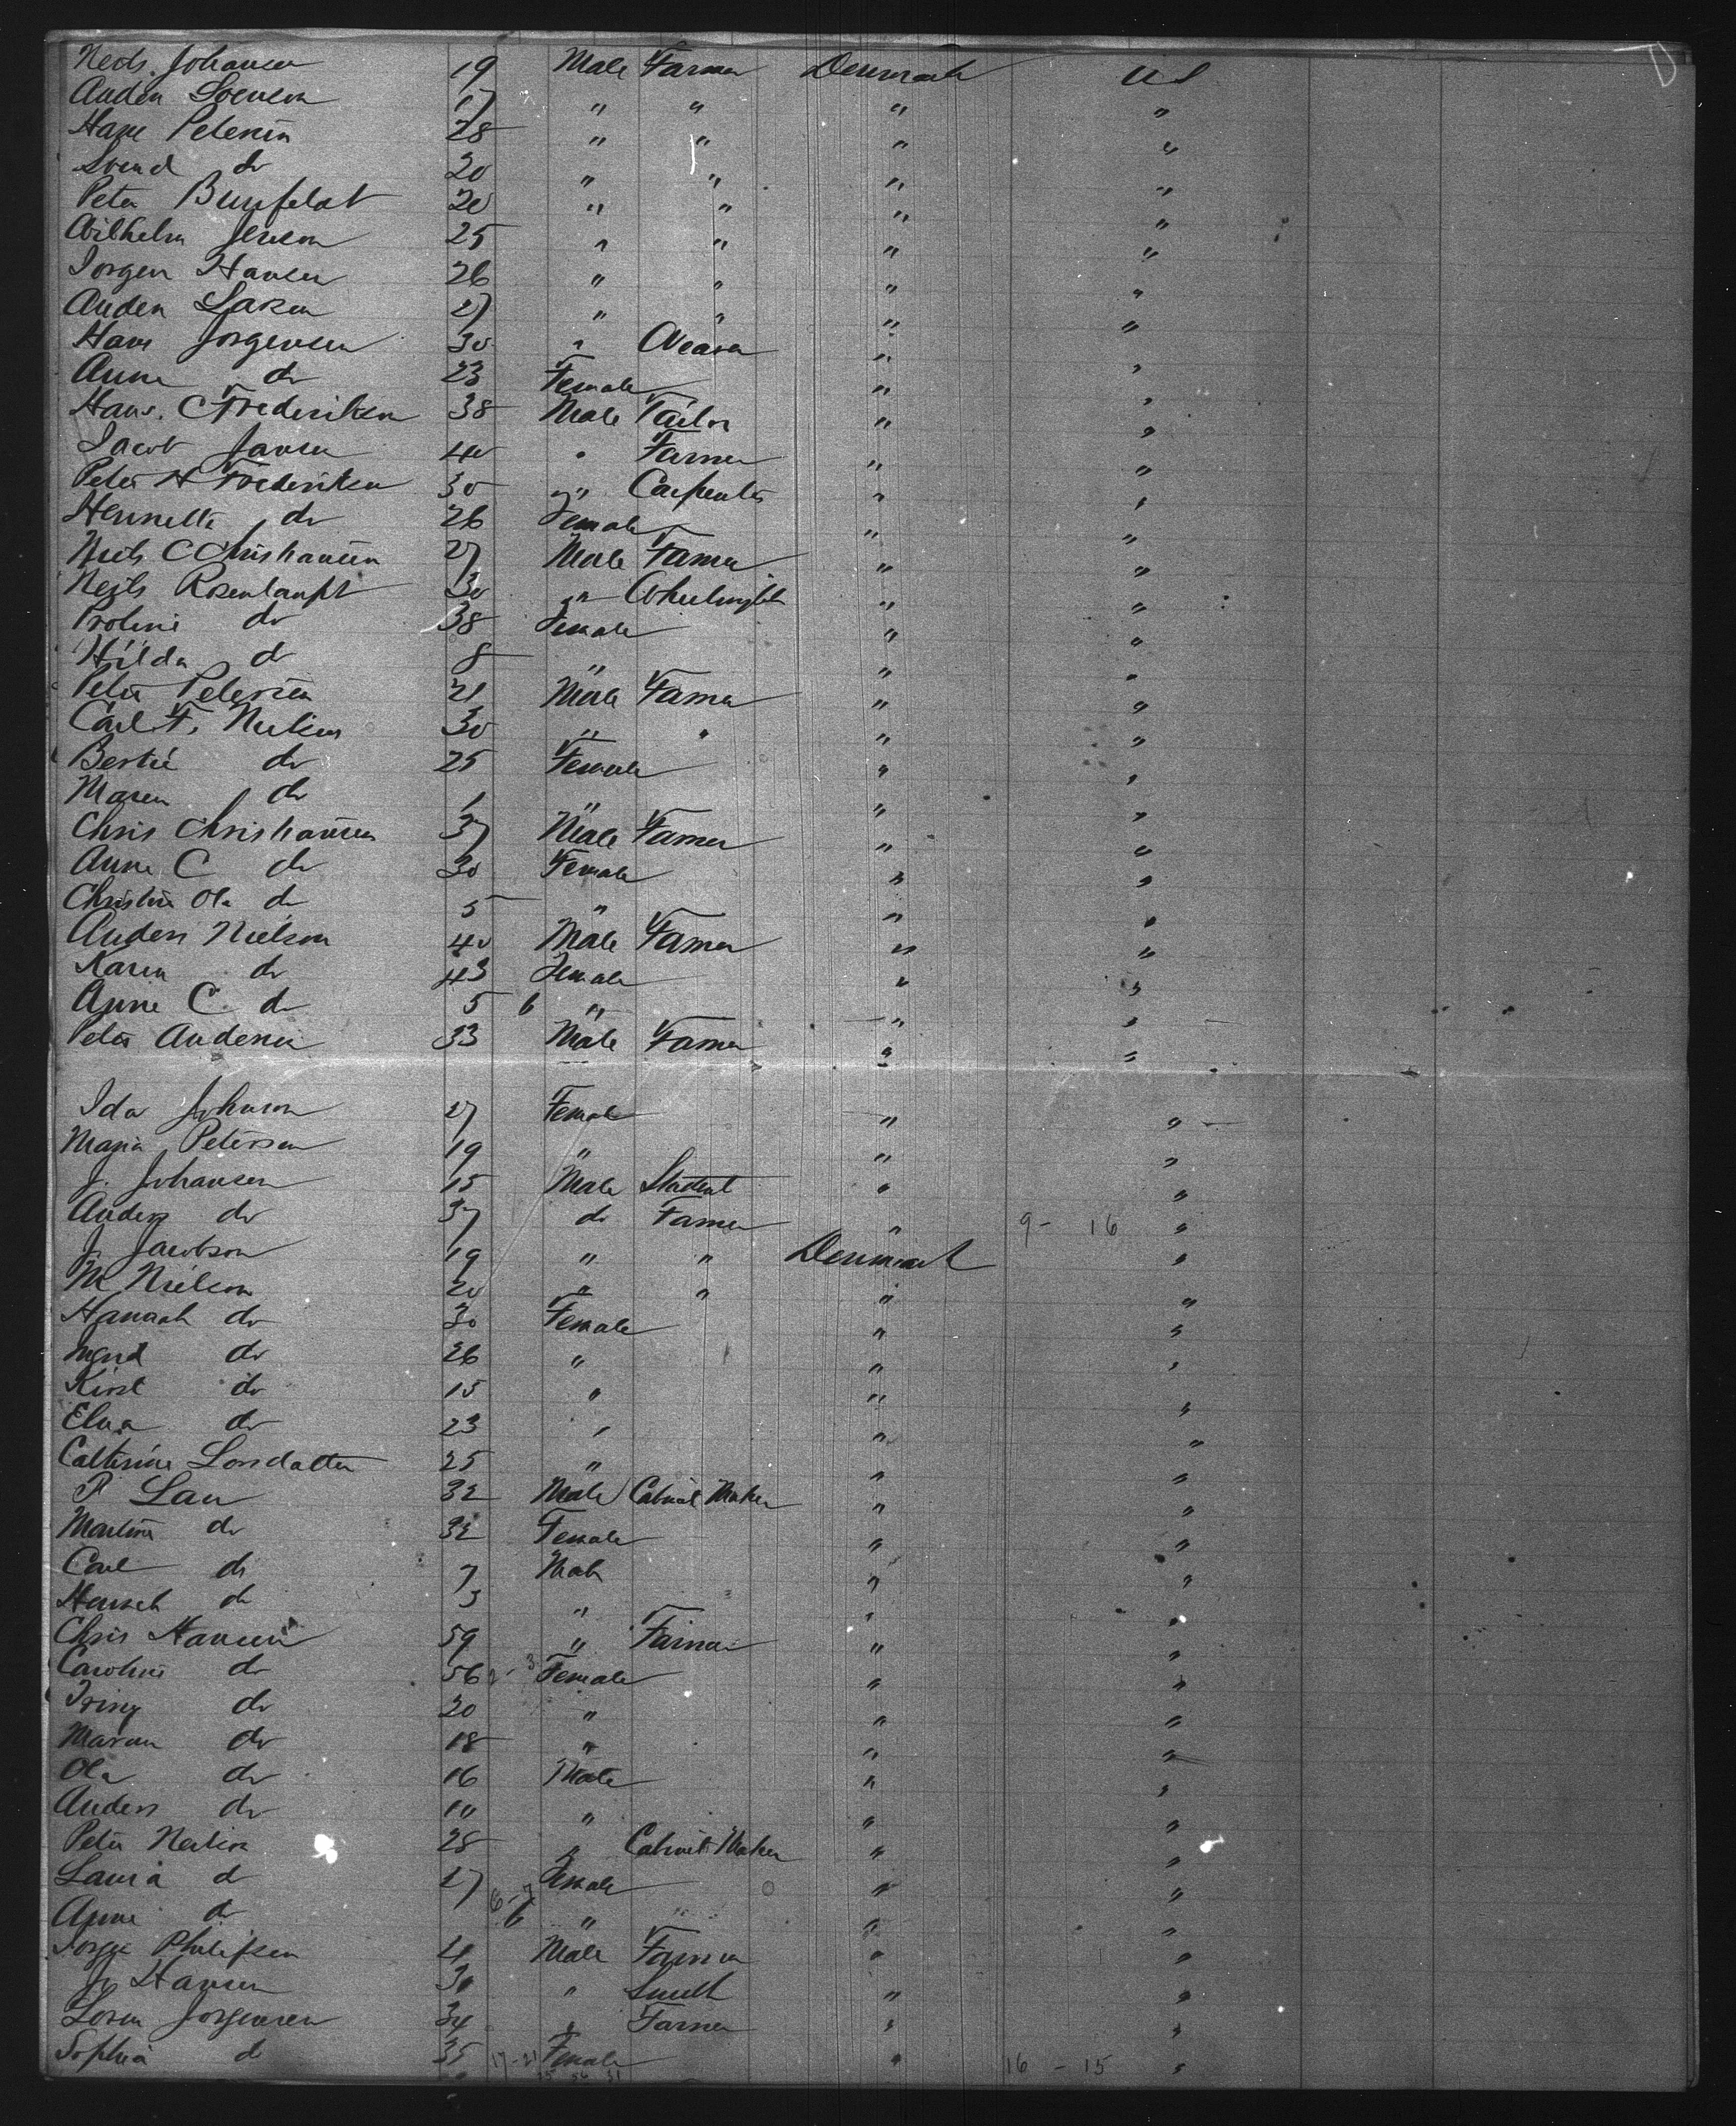 Neils Johansen 19 Male Farmer Denmark US
Anders Sorenson 17 " " " "
Hans Petersen 28 " " " "
Svend do 20 " " " "
Peter 20 " " " "
Wilhelm Jensen 25 " " " "
Jorgen Hansen 26 " " " "
Anders Larsen 27 " " " "
Hans Jorgensen 30 " Weaver " "
Anna do 23 Female " "
Hans. C Frederiksen 38 Male Tailor " "
Jacob Jansen 40 " Farmer " "
Peter H Frederiksen 30 " Carpenter " "
Hennette do 26 Female " "
Niels C Christiansen 27 Male Farmer " "
Neils 30 " Wheelwright " "
do 38 Female " "
Hilda do 8 " " "
Peter Petersen 21 Male Farmer " "
Carl F. Neilsen 30 " " " "
do 25 Female " "
Maren do 1 " " "
Chris Christiansen 37 Male Farmer " "
Anne C do 30 Female " "
Christine Ola do 5 " " "
Anders Nielson 40 Male Farmer " "
Karen do 43 Female " "
Anne C. do 5 6 " " "
Peter Andersen 33 Male Farmer " "
Ida Johnson 27 Female " "
Maria Petersen 19 " " "
J. Johansen 15 Male Student " "
Anders do 37 do Farmer " 9 - 16 "
J. Jacobson 19 " " Denmark "
M Nielson 20 " " " "
Hannah do 30 Female " "
do 26 " " "
Kirst do 15 " " "
Elna do 23 " " "
Catterine Larsdatter 25 " " "
P Lau 32 Male Cabinet Maker " "
Martina do 32 Female " "
Carl do 7 Male " "
do 3 " " "
Chris Hansen 59 " Farmer " "
Caroline do 56 2 - 3 Female " "
do 20 " " "
Maren do 18 " " "
Ola do 16 Male " "
Anders do 10 " " "
Peter Neilson 28 " Cabinet Maker " "
Laura do 27 Female " "
Anne do 6 " " "
Philipsen 41 Male Farmer " "
Jr Hansen 30 " Smith " "
Soren Jorgensen 34 " Farmer " "
Sophia do 35 17 - 21 Female " 16 - 15 "